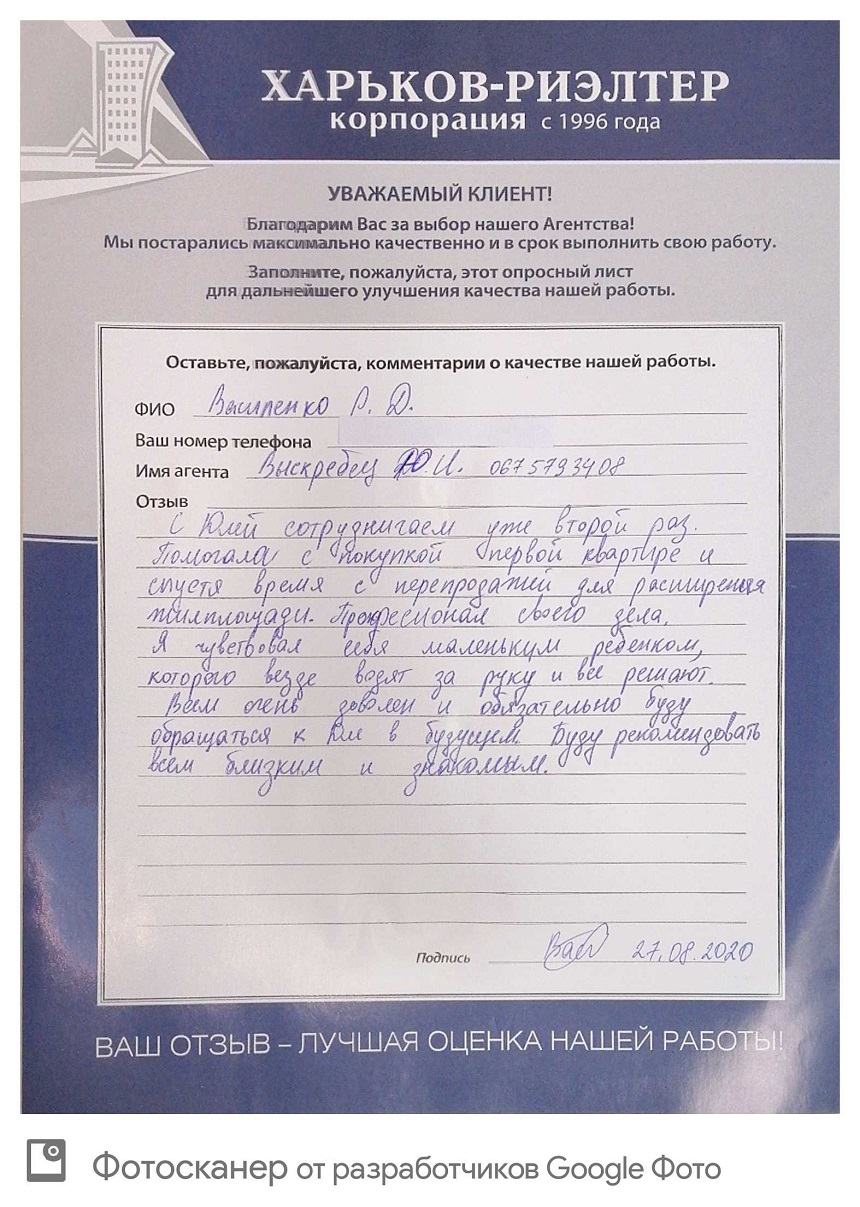 ХАРЬКОВ-РИЭЛТЕР
корпорация с 1996 года
УВАЖАЕМЫЙ КЛИЕНТ!
Благодарим Вас за выбор нашего Агентства!
Мы постарались максимально качественно и в срок выполнить свою работу.
Заполните, пожалуйста, этот опросный лист
для дальнейшего улучшения качества нашей работы.
Оставьте, пожалуйста, комментарии о качестве нашей работы.
ФИО Василенко Р. Д.
Ваш номер телефона
Имя агента Выскребец Ю.И. 0675793408
Отзыв
С Юлей сотрудничаем уже второй раз.
Помогала с покупкой первой квартире и
спустя время с перепродажей для расширения
жилплощади. Профессионал своего дела.
Я чувствовал себя маленьким ребенком,
которого везде водят за руку и все решают.
Всем очень доволен и обязательно буду
обращаться к Юле в будущем. Буду рекомендовать
всем близким и знакомым.
Подпись 27.08.2020
ВАШ ОТЗЫВ – ЛУЧШАЯ ОЦЕНКА НАШЕЙ РАБОТЫ!
Фотосканер от разработчиков Google Фото